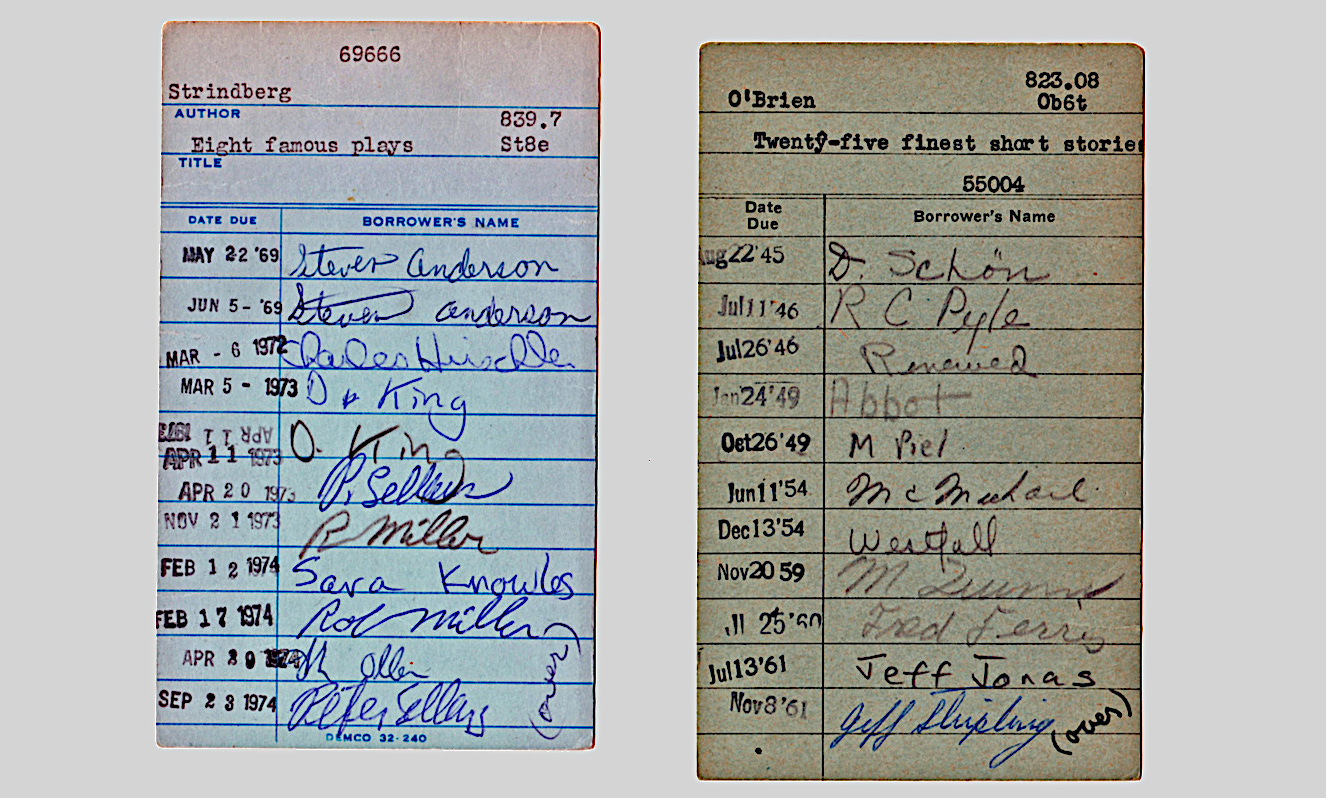 69666
Strindberg
AUTHOR 839.7
Eight famous plays St8e
TITLE
DATE DUE BORROWER'S NAME
MAY 22 '69 Steven Anderson
JUN 5 - '69 Steven Anderson
MAR - 6 1972 Charles
MAR 5 - 1973 D King
APR 11 1973
APR 11 1973 D. King
APR 20 1973 P. Sellers
NOV 21 1973 R Miller
FEB 12 1974 Sara Knowles
FEB 17 1974 Rob Miller
APR 1974
SEP 23 1974 Peter Sellers
(over)
DEMCO 32-240
823.08
O'Brien Ob6t
Twenty-five finest short stories
55004
Date Due Borrower's Name
Aug22'45 D. Schön
Jul11'46 R C Pyle
Jul26'46 Renewed
Jan24'49 Abbot
Oct26'49 M Piel
Jun11'54 McMichael
Dec13'54 Westfall
Nov20 59 M Quinn
25'60 Fred Ferris
Jul13'61 Jeff Jonas
Nov8'61 Jeff Stripling
(over)